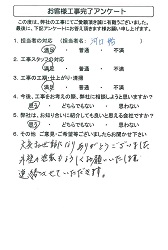 お客様工事完了アンケート
この度は、弊社の工事にてご愛顧頂き誠に有難うございました。
最後に、下記アンケートにお答え頂きます様お願い申し上げます。
1. 担当者の対応 (担当者名:
満足 ・ 普通 ・ 不満
2. 工事スタッフの対応
満足 ・ 普通 ・ 不満
3. 工事の工期・仕上がり・清掃
満足 ・ 普通 ・ 不満
4. 今後、工事をお考えの際、弊社に相談しようと思いますか?
思う ・ どちらでもない ・ 思わない
5. 弊社は、お知り合いに紹介しても良いと思える会社ですか?
思う ・ どちらでもない ・ 思わない
6. その他 ご意見・ご希望等ございましたらお聞かせ下さい
大変お世話になりありがとうございました
よろしくお願いいたします。
連絡させていただきます。